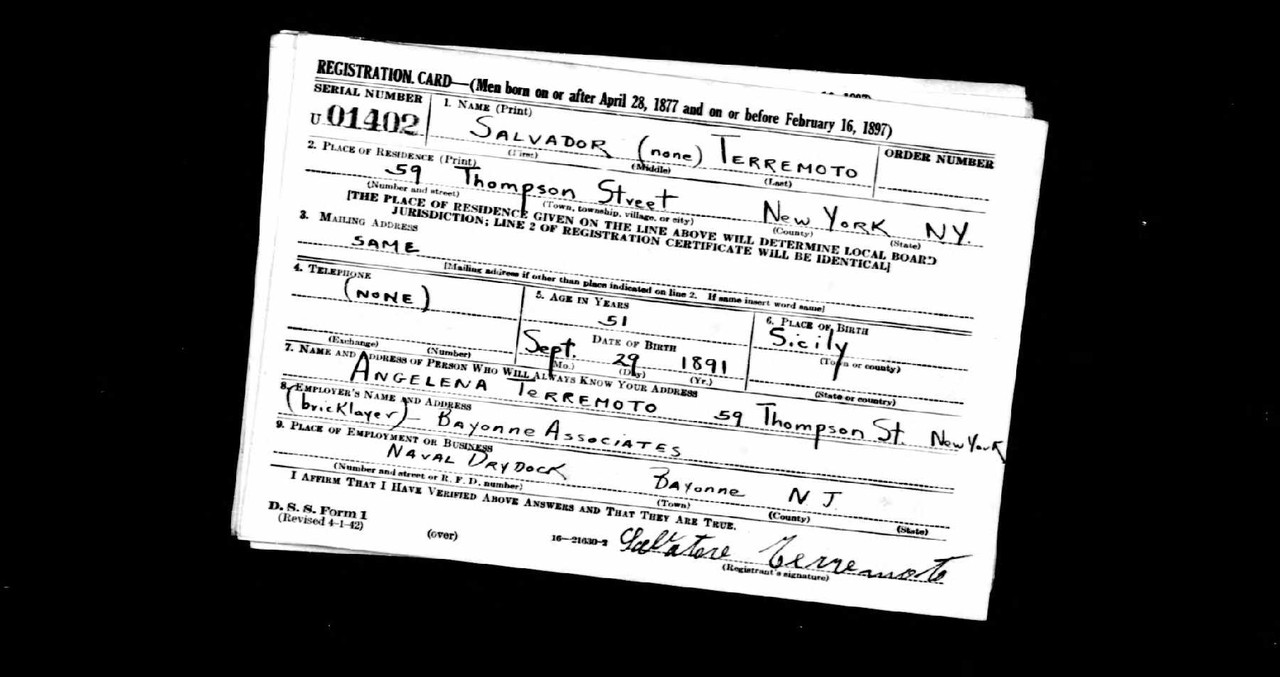 REGISTRATION CARD—(Men born on or after April 28, 1877 and on or before February 16, 1897)
SERIAL NUMBER
U 01402
1. NAME (Print)
SALVADOR (none) TERREMOTO
(First) (Middle) (Last)
ORDER NUMBER
2. PLACE OF RESIDENCE (Print)
59 Thompson Street New York N.Y.
(Number and street) (Town, township, village, or city) (County) (State)
[THE PLACE OF RESIDENCE GIVEN ON THE LINE ABOVE WILL DETERMINE LOCAL BOARD
JURISDICTION; LINE 2 OF REGISTRATION CERTIFICATE WILL BE IDENTICAL]
3. MAILING ADDRESS
SAME
[Mailing address if other than place indicated on line 2. If same insert word same]
4. TELEPHONE
(NONE)
(Exchange) (Number)
5. AGE IN YEARS
51
DATE OF BIRTH
Sept. 29 1891
(Mo.) (Day) (Yr.)
6. PLACE OF BIRTH
Sicily
(Town or county)
(State or country)
7. NAME AND ADDRESS OF PERSON WHO WILL ALWAYS KNOW YOUR ADDRESS
ANGELENA TERREMOTO 59 Thompson St. New York
8. EMPLOYER'S NAME AND ADDRESS
(bricklayer) — Bayonne Associates
9. PLACE OF EMPLOYMENT OR BUSINESS
NAVAL DRYDOCK Bayonne N J.
(Number and street or R. F. D. number) (Town) (County) (State)
I AFFIRM THAT I HAVE VERIFIED ABOVE ANSWERS AND THAT THEY ARE TRUE.
D. S. S. Form 1
(Revised 4-1-42) (over) 16—21630-2 Salvatore Terremoto
(Registrant's signature)